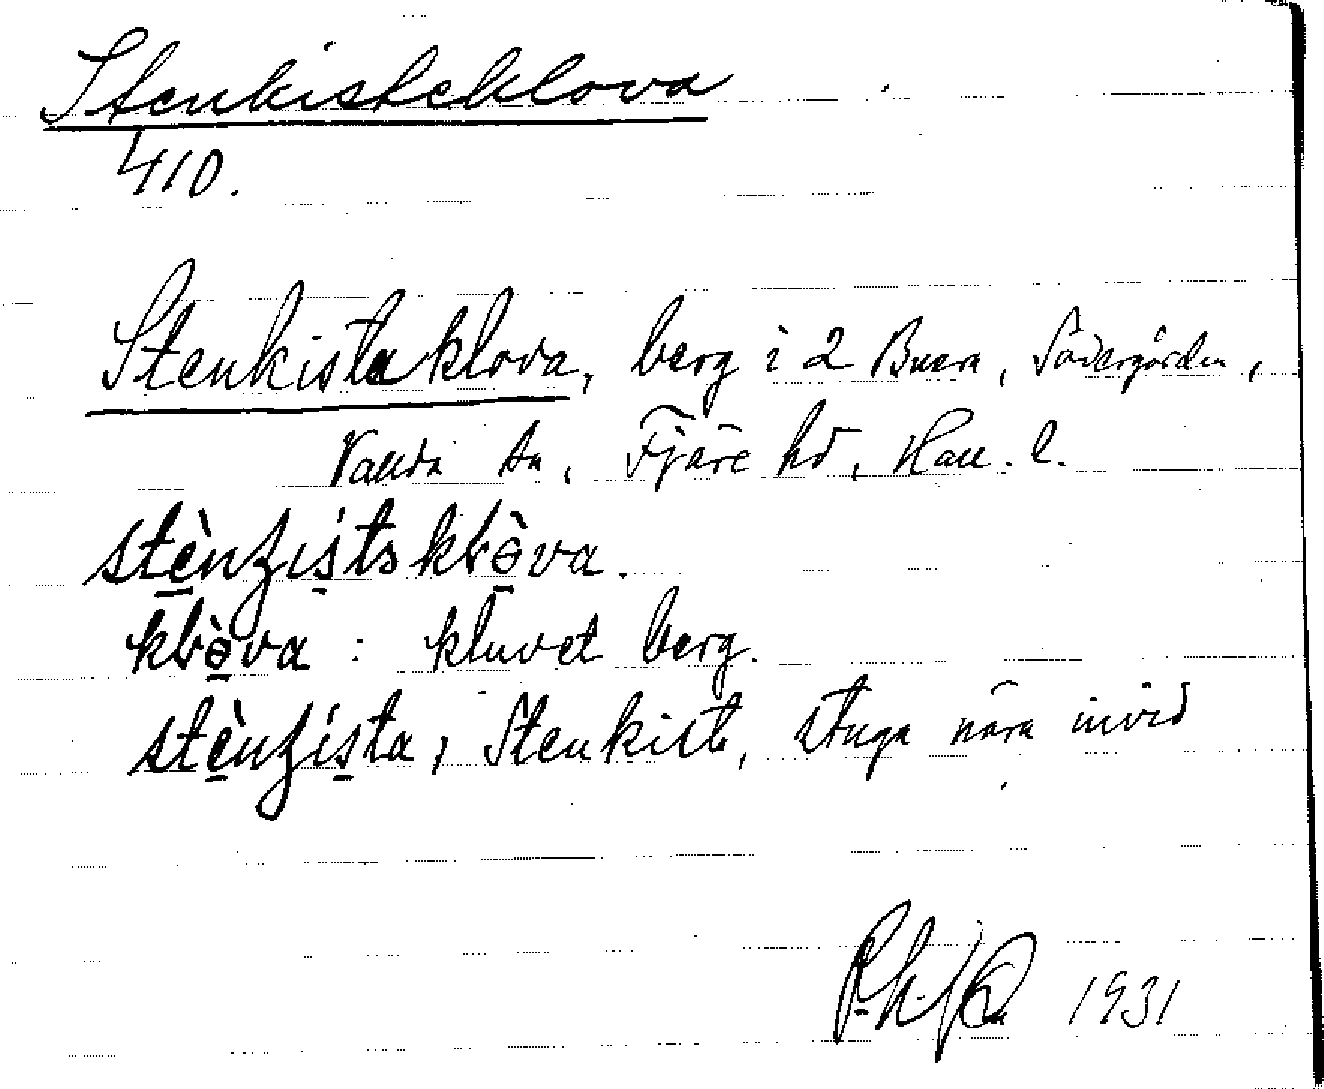 Stenkisteklova
410.
Stenkistaklova, berg i 2 Buera, Södergården,
Vallda sn, Fjäre hd, Hall. l.
stènʒistskɫə̀va.
kɫə̀va : kluvet berg.
stènʒista, Stenkist, stuga nära invid
1931